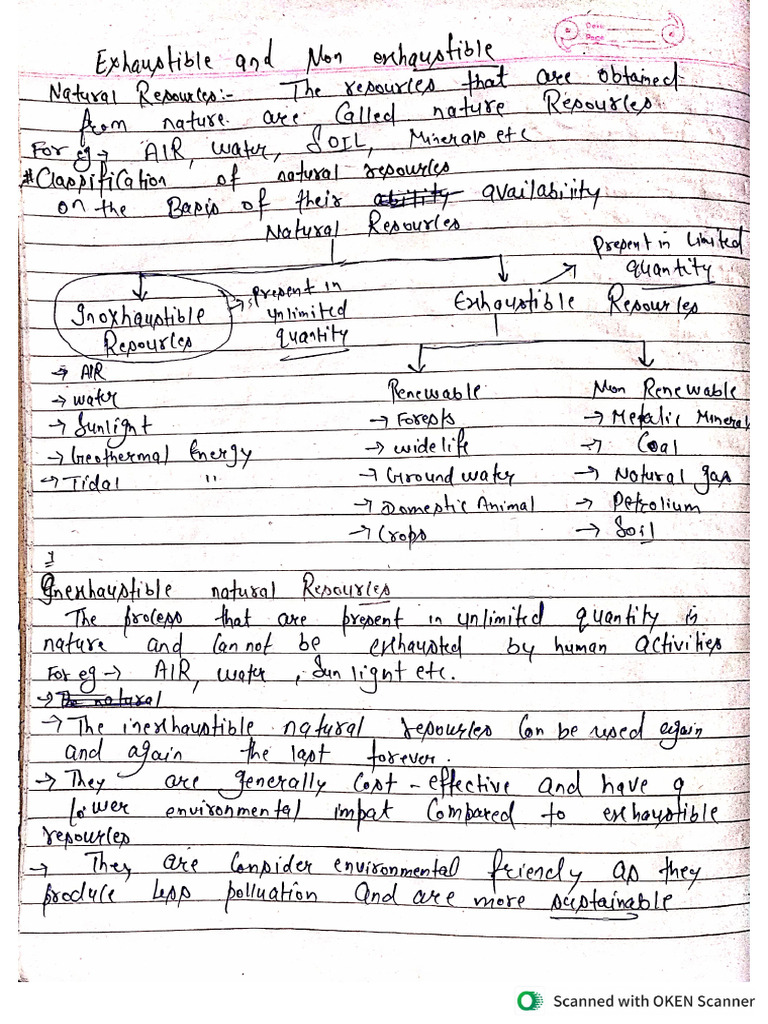 Date
Page
Exhaustible and Non exhaustible
Natural Resources:- The resources that are obtained
from nature are Called nature Resources
For eg → AIR, water, SOIL, Minerals etc
#Classification of natural resources
on the Basis of their ability availability
Natural Resources
Present in Limited
quantity
Inoxhaustible
Resources
→ present in
unlimited
quantity
Exhaustible Resources
→ AIR
→ water
→ Sunlight
→ Geothermal Energy
→ Tidal "
Renewable
→ Forests
→ wide life
→ Ground water
→ Domestic Animal
→ Crops
Non Renewable
→ Metalic Mineral
→ Coal
→ Natural gas
→ Petrolium
→ Soil
Inexhaustible natural Resources
The process that are present in unlimited quantity is
nature and Can not be exhausted by human activities
For eg → AIR, water, Sun light etc.
→ The natural
→ The inexhaustible natural resources Can be used again
and again the last forever.
→ They are generally Cost-effective and have a
lower environmental impat Compared to exhaustible
resources
→ They are Consider environmental friendly as they
produce less polluation and are more sustainable
Scanned with OKEN Scanner